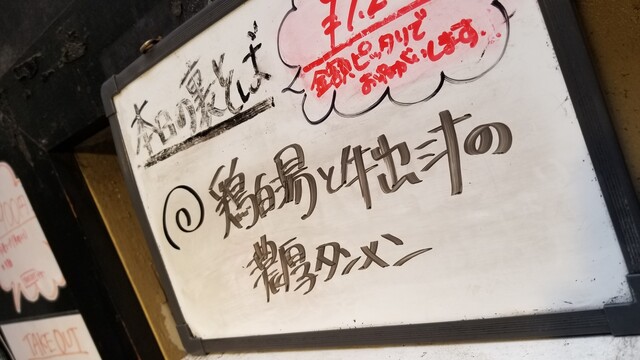 本日の裏そば
金額ピッタリで
おねがいします。
鶏白湯と牛出汁の
濃厚タンメン
TAKE OUT